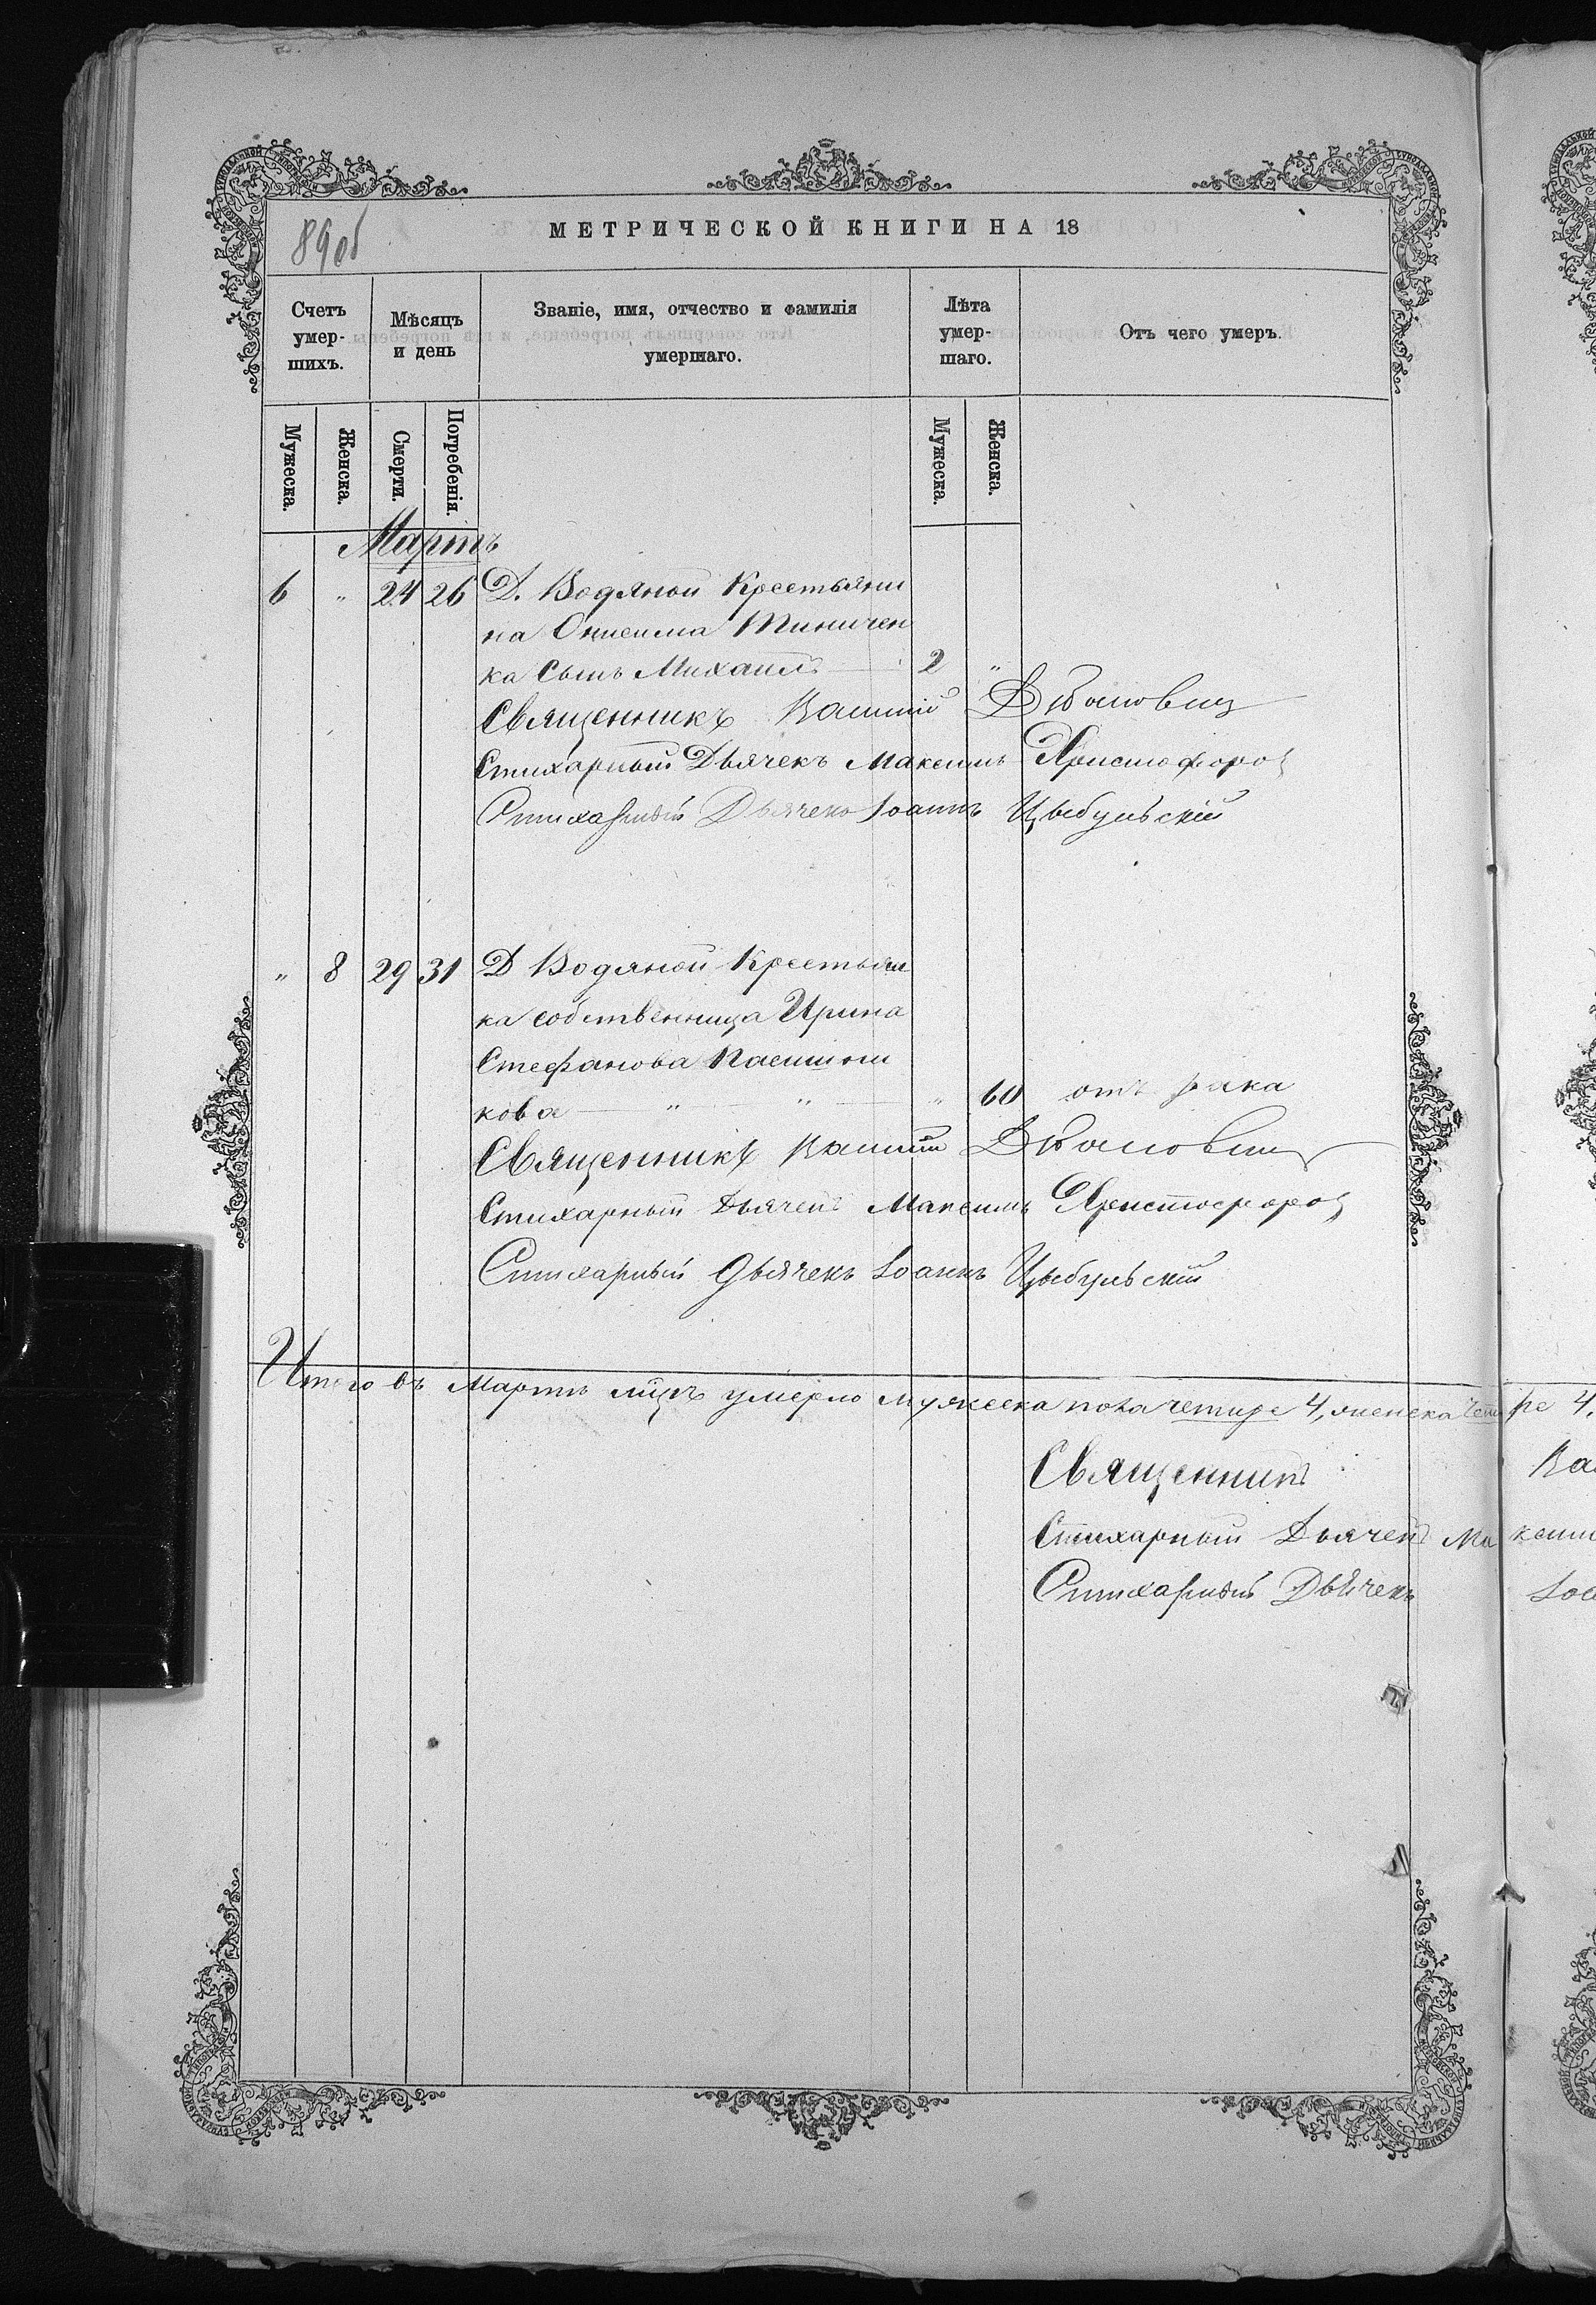 89об
МЕТРИЧЕСКОЙ КНИГИ НА 18
Счетъ умер- шихъ.
Мѣсяцъ и день
Званіе, имя, отчество и фамилія умершаго.
Лѣта умер- шаго.
Отъ чего умеръ.
Мужеска. Женска. Смерти. Погребенія. Мужеска. Женска.
Мартъ
6 " 24 26 Д. Водяной Крестьяни
на Онисима Миничен
ка сынъ Михаилъ 2 "
Священникъ
Стихарный Дьячекъ Максимъ Христофоров
Стихарный Дьячекъ Іоаннъ Цыбульскій
" 8 29 31 Д Водяной Крестьян
ка собственница Ирина
Стефанова
кова " " " 60 отъ рака
Священникъ
Стихарный Дьячекъ Максимъ Христофоров
Стихарный Дьячекъ Іоаннъ Цыбульскій
Итого въ Мартѣ умерло мужеска пола четыре 4, женска четы ре 4.
Священникъ
Стихарный Дьячекъ Ма ксим
Стихарный Дьячекъ Іоа